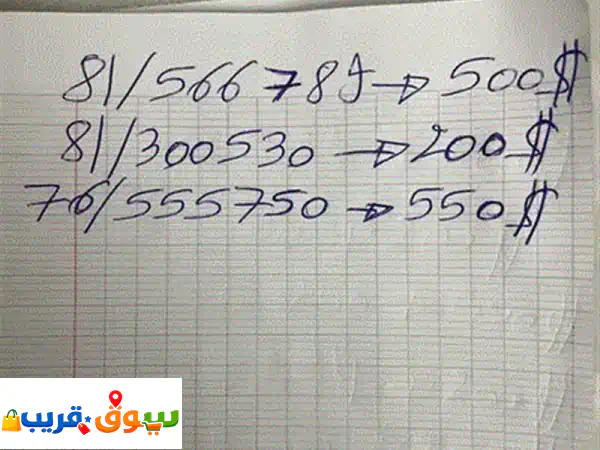 81/566789→500$
81/300530→200$
76/555750→550$
سوق قريب